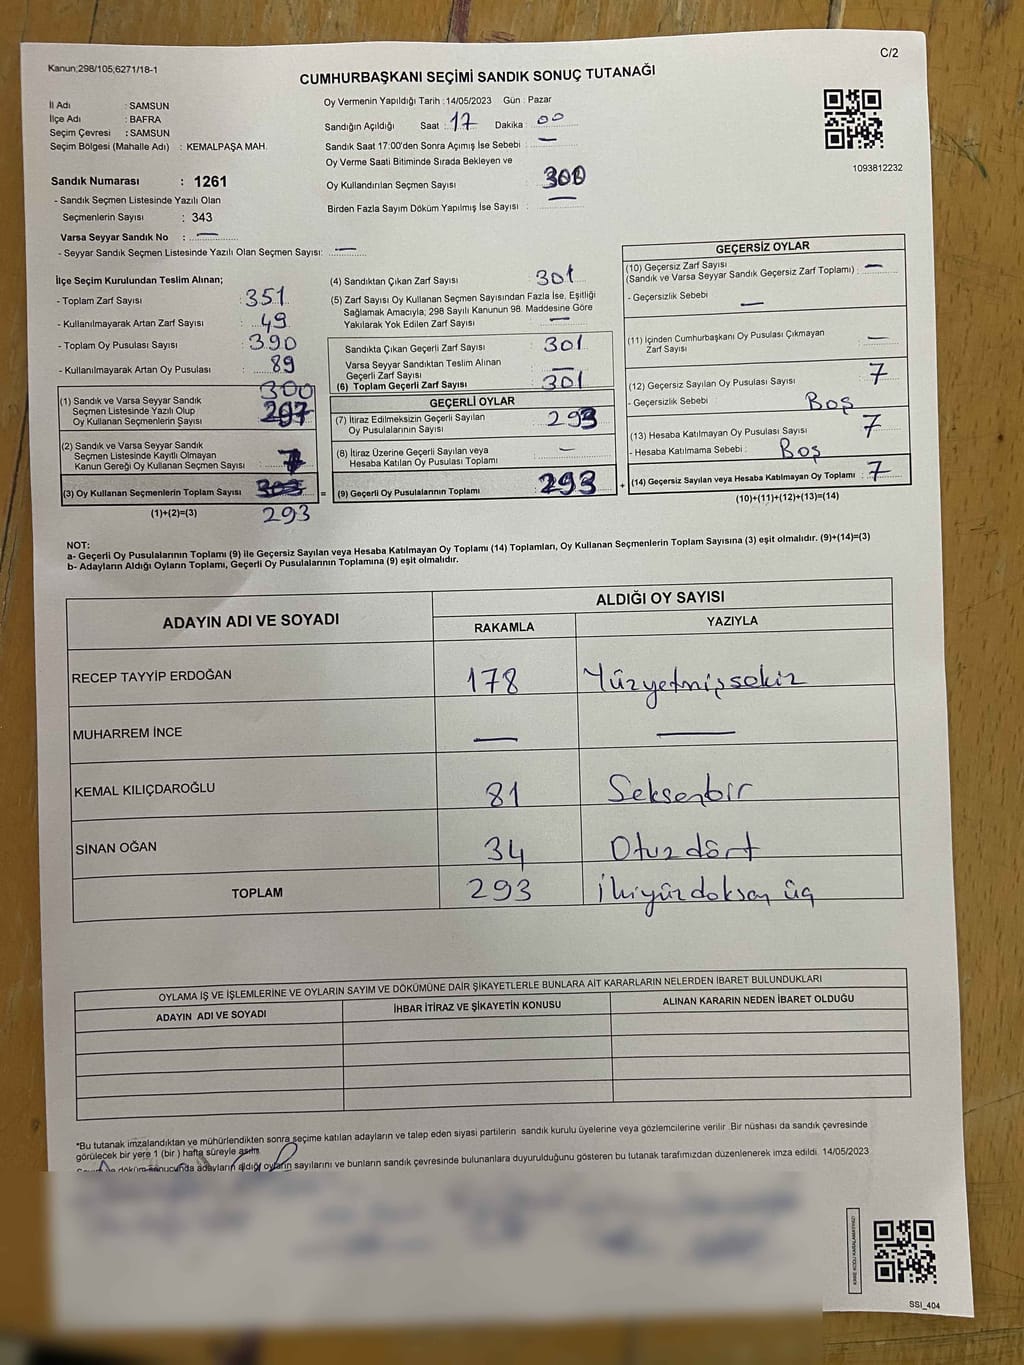 Kanun:298/105,6271/18-1
C/2
CUMHURBAŞKANI SEÇİMİ SANDIK SONUÇ TUTANAĞI
İl Adı : SAMSUN
İlçe Adı : BAFRA
Seçim Çevresi : SAMSUN
Seçim Bölgesi (Mahalle Adı) : KEMALPAŞA MAH.
Oy Vermenin Yapıldığı Tarih :14/05/2023 Gün : Pazar
Sandığın Açıldığı Saat : 17 Dakika : 00
Sandık Saat 17:00'den Sonra Açımış İse Sebebi : —
Oy Verme Saati Bitiminde Sırada Bekleyen ve
Oy Kullandırılan Seçmen Sayısı
Birden Fazla Sayım Döküm Yapılmış İse Sayısı : —
1093812232
Sandık Numarası : 1261
- Sandık Seçmen Listesinde Yazılı Olan
Seçmenlerin Sayısı : 343
Varsa Seyyar Sandık No : —
- Seyyar Sandık Seçmen Listesinde Yazılı Olan Seçmen Sayısı: —
İlçe Seçim Kurulundan Teslim Alınan;
- Toplam Zarf Sayısı : 351
- Kullanılmayarak Artan Zarf Sayısı : 49
- Toplam Oy Pusulası Sayısı : 390
- Kullanılmayarak Artan Oy Pusulası : 89
300
(1) Sandık ve Varsa Seyyar Sandık
Seçmen Listesinde Yazılı Olup
Oy Kullanan Seçmenlerin Sayısı 297
(2) Sandık ve Varsa Seyyar Sandık
Seçmen Listesinde Kayıtlı Olmayan
Kanun Gereği Oy Kullanan Seçmen Sayısı 7
(3) Oy Kullanan Seçmenlerin Toplam Sayısı
(1)+(2)=(3) 293
(4) Sandıktan Çıkan Zarf Sayısı 301
(5) Zarf Sayısı Oy Kullanan Seçmen Sayısından Fazla İse, Eşitliği
Sağlamak Amacıyla; 298 Sayılı Kanunun 98. Maddesine Göre
Yakılarak Yok Edilen Zarf Sayısı —
Sandıkta Çıkan Geçerli Zarf Sayısı 301
Varsa Seyyar Sandıktan Teslim Alınan
Geçerli Zarf Sayısı —
(6) Toplam Geçerli Zarf Sayısı 301
GEÇERLİ OYLAR
(7) İtiraz Edilmeksizin Geçerli Sayılan
Oy Pusulalarının Sayısı 293
(8) İtiraz Üzerine Geçerli Sayılan veya
Hesaba Katılan Oy Pusulası Toplamı —
= (9) Geçerli Oy Pusulalarının Toplamı 293
GEÇERSİZ OYLAR
(10) Geçersiz Zarf Sayısı
(Sandık ve Varsa Seyyar Sandık Geçersiz Zarf Toplamı) : —
- Geçersizlik Sebebi —
(11) İçinden Cumhurbaşkanı Oy Pusulası Çıkmayan
Zarf Sayısı —
(12) Geçersiz Sayılan Oy Pusulası Sayısı 7
- Geçersizlik Sebebi : Boş
(13) Hesaba Katılmayan Oy Pusulası Sayısı 7
- Hesaba Katılmama Sebebi : Boş
+ (14) Geçersiz Sayılan veya Hesaba Katılmayan Oy Toplamı : 7
(10)+(11)+(12)+(13)=(14)
NOT:
a- Geçerli Oy Pusulalarının Toplamı (9) ile Geçersiz Sayılan veya Hesaba Katılmayan Oy Toplamı (14) Toplamları, Oy Kullanan Seçmenlerin Toplam Sayısına (3) eşit olmalıdır. (9)+(14)=(3)
b- Adayların Aldığı Oyların Toplamı, Geçerli Oy Pusulalarının Toplamına (9) eşit olmalıdır.
ADAYIN ADI VE SOYADI ALDIĞI OY SAYISI
RAKAMLA YAZIYLA
RECEP TAYYİP ERDOĞAN 178 Yüzyetmişsekiz
MUHARREM İNCE — —
KEMAL KILIÇDAROĞLU 81 Seksenbir
SİNAN OĞAN 34 Otuzdört
TOPLAM 293 ikiyüzdoksan üç
OYLAMA İŞ VE İŞLEMLERİNE VE OYLARIN SAYIM VE DÖKÜMÜNE DAİR ŞİKAYETLERLE BUNLARA AİT KARARLARIN NELERDEN İBARET BULUNDUKLARI
ADAYIN ADI VE SOYADI İHBAR İTİRAZ VE ŞİKAYETİN KONUSU ALINAN KARARIN NEDEN İBARET OLDUĞU
*Bu tutanak imzalandıktan ve mühürlendikten sonra seçime katılan adayların ve talep eden siyasi partilerin sandık kurulu üyelerine veya gözlemcilerine verilir .Bir nüshası da sandık çevresinde
görülecek bir yere 1 (bir ) hafta süreyle asılır.
döküm sonucunda adayların aldığı oyların sayılarını ve bunların sandık çevresinde bulunanlara duyurulduğunu gösteren bu tutanak tarafımızdan düzenlenerek imza edildi. 14/05/2023
SSI_404